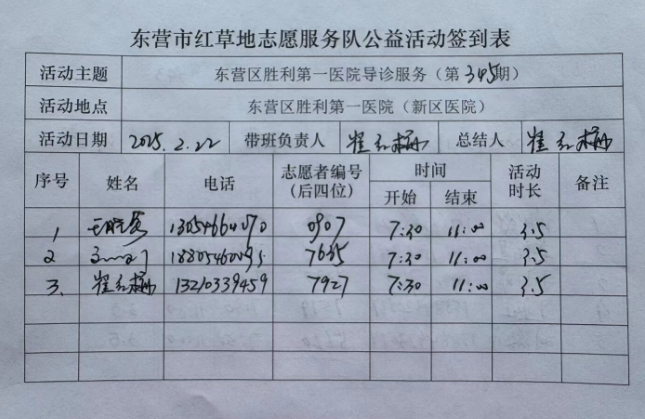 东营市红草地志愿服务队公益活动签到表
活动主题 东营区胜利第一医院导诊服务（第345期）
活动地点 东营区胜利第一医院（新区医院）
活动日期 2025.2.22 带班负责人 崔红梅 总结人 崔红梅
序号 姓名 电话 志愿者编号（后四位） 时间 开始 结束 活动时长 备注
1 13054664070 0907 7:30 11:00 3.5
2 7635 7:30 11:00 3.5
3. 崔红梅 13210339459 7927 7:30 11:00 3.5